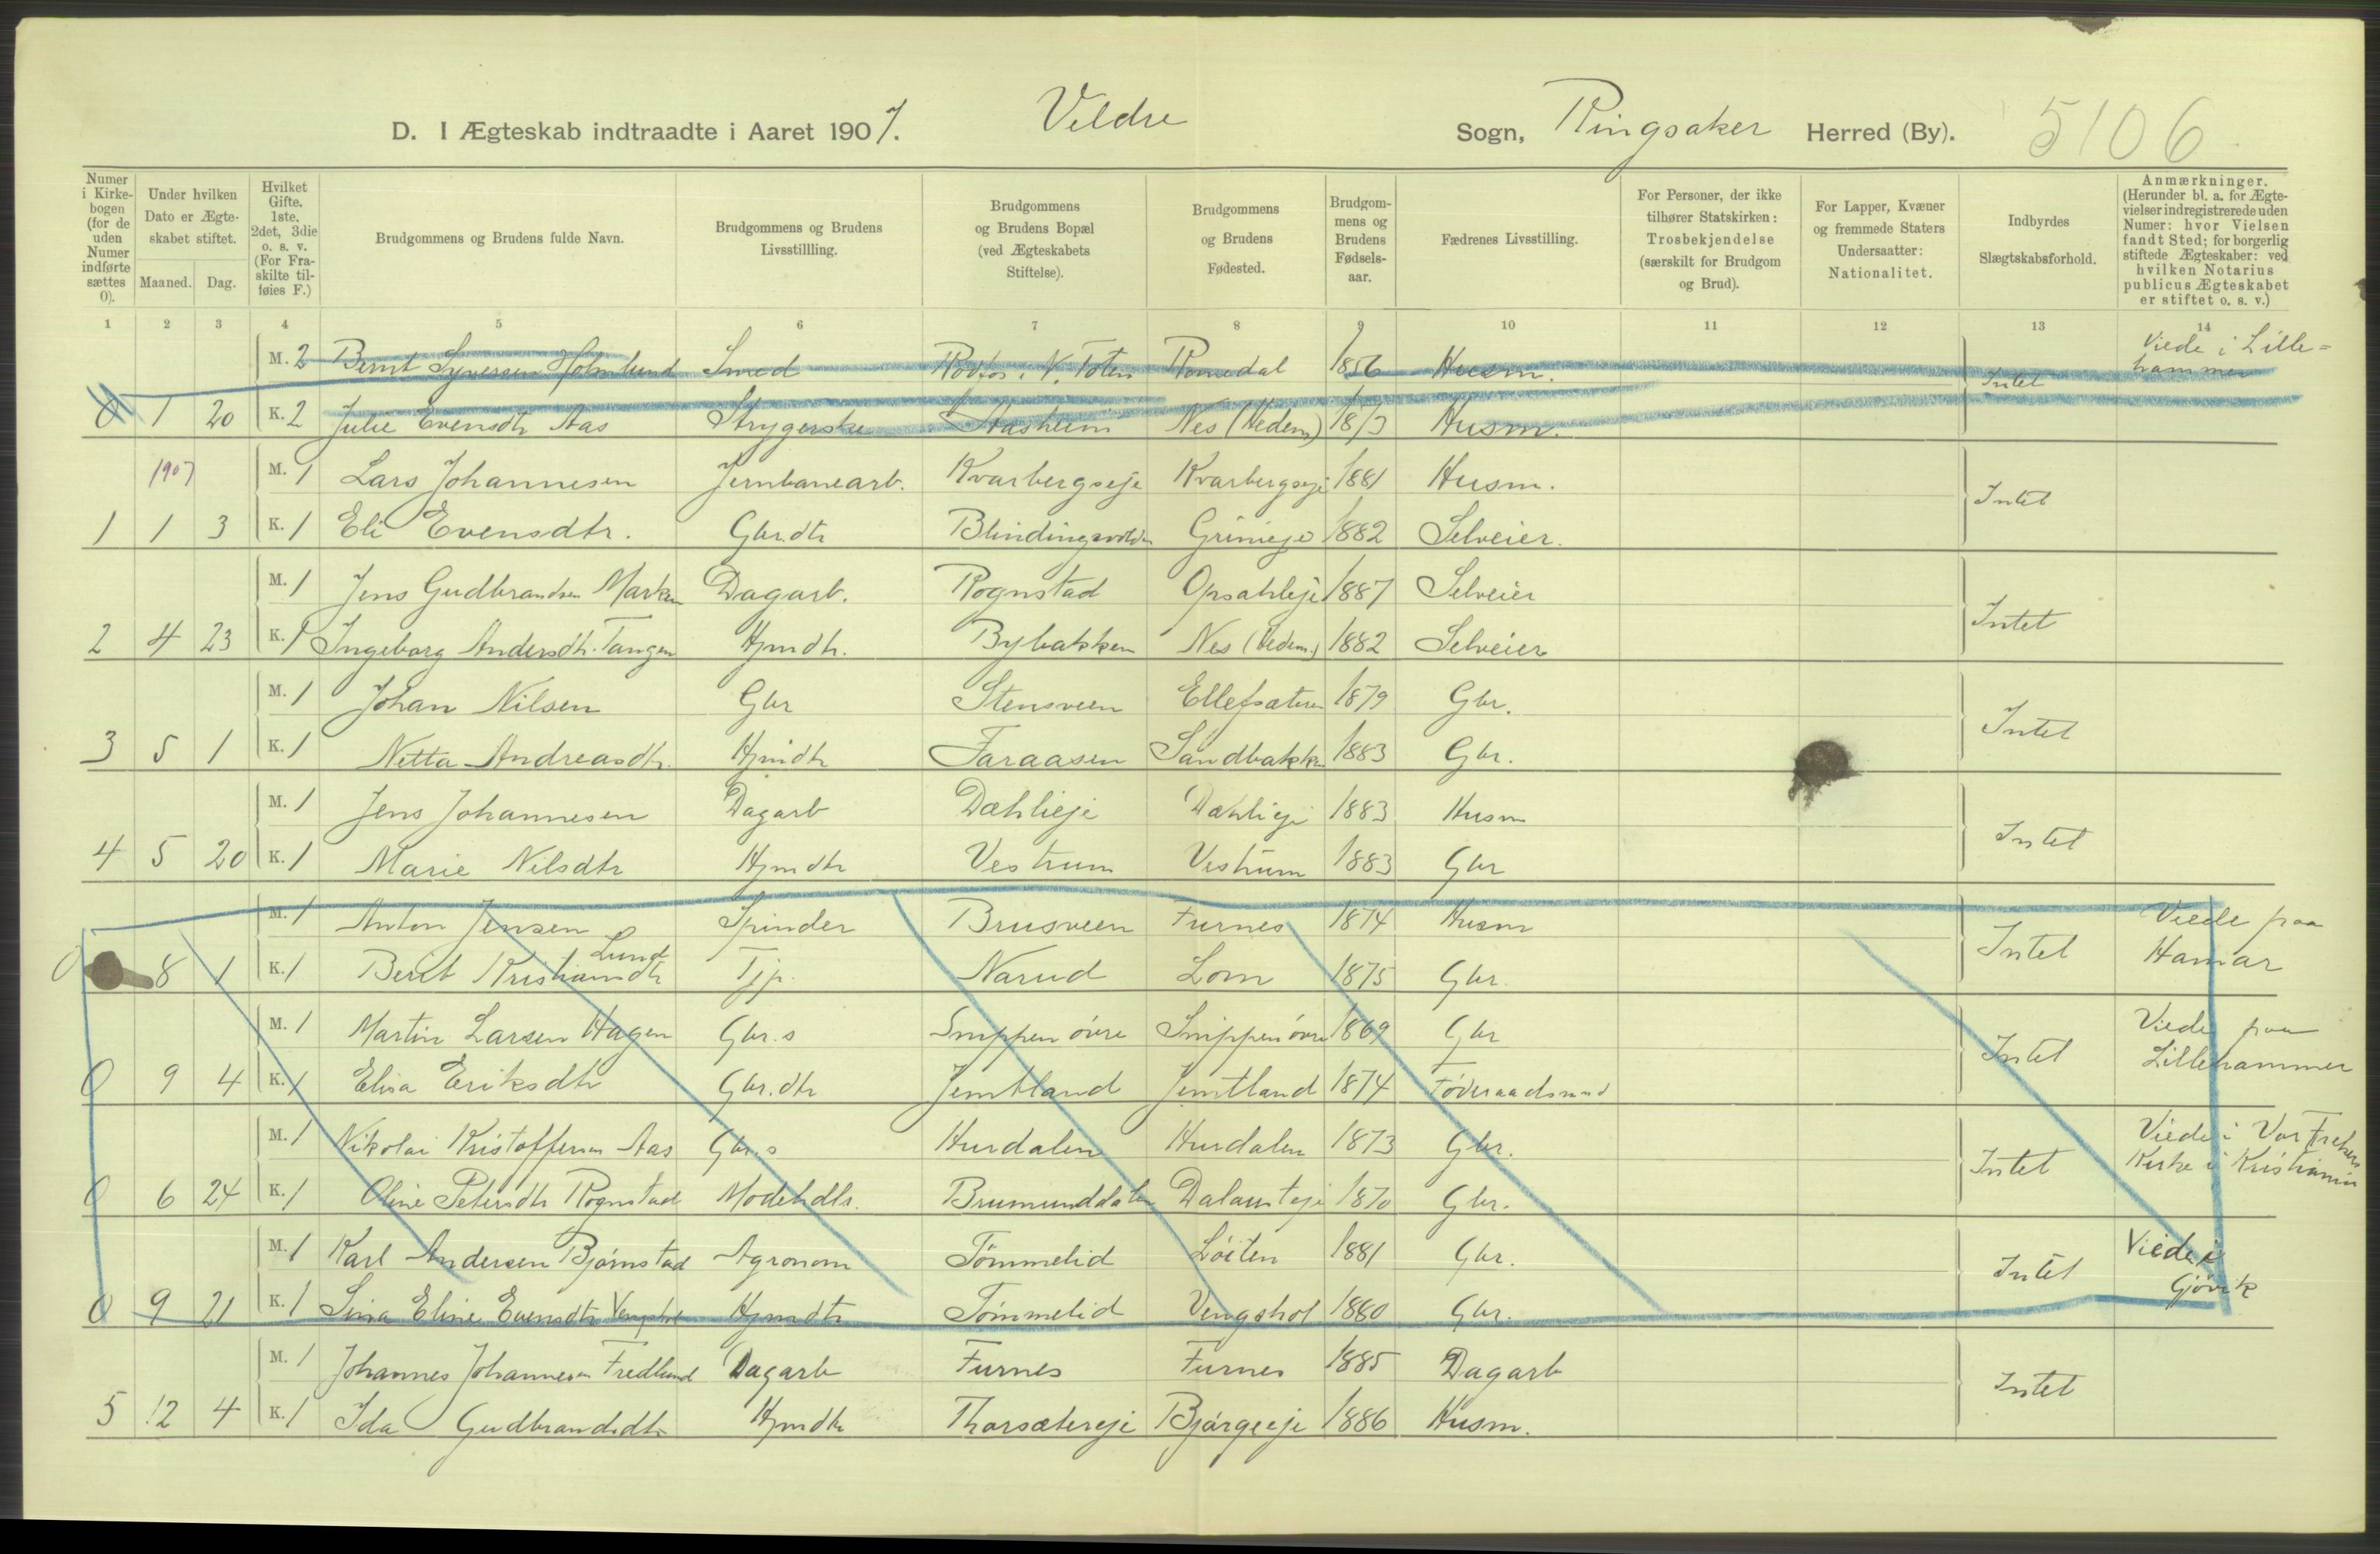 D. I Ægteskab indtraadte i Aaret 1907. Veldre Sogn, Ringsaker Herred (By). 5106
Numer i Kirkebogen (for de uden Numer indførte sættes 0).
Under hvilken Dato er Ægteskabet stiftet.
Maaned. Dag.
Hvilket Gifte. 1ste, 2det, 3die o. s. v. (For Fraskilte tilføies F.)
Brudgommens og Brudens fulde Navn.
Brudgommens og Brudens Livsstillling.
Brudgommens og Brudens Bopæl (ved Ægteskabets Stiftelse).
Brudgommens og Brudens Fødested.
Brudgommens og Brudens Fødselsaar.
Fædrenes Livsstilling.
For Personer, der ikke tilhører Statskirken: Trosbekjendelse (særskilt for Brudgom og Brud).
For Lapper, Kvæner og fremmede Staters Undersaatter: Nationalitet.
Indbyrdes Slægtskabsforhold.
Anmærkninger. (Herunder bl. a. for Ægtevielser indregistrerede uden Numer: hvor Vielsen fandt Sted; for borgerlig stiftede Ægteskaber: ved hvilken Notarius publicus Ægteskabet er stiftet o. s. v.)
1 2 3 4 5 6 7 8 9 10 11 12 13 14
M. 2 Bernt Syversen Holmlund Smed N. Toten Romedal 1856 Husm. Intet Viede i Lillehammer
0 1 20 K. 2 Julie Evensdtr Aas Strygerske Aasheim Nes (Hedem) 1873 Husm.
1907 M. 1 Lars Johannesen Jernbanearb. Kvarbergseje Kvarbergseje 1881 Husm. Intet
1 1 3 K. 1 Eli Evensdtr. Gbr.dtr Blindingsvolden Grimeje 1882 Selveier.
M. 1 Jens Gudbrandsen Marken Dagarb. Rognstad Opsahleje 1887 Selveier Intet
2 4 23 K. 1 Ingeborg Andersdtr. Tangen Hjmdtr. Bybakken Nes (Hedem.) 1882 Selveier
M. 1 Johan Nilsen Gbr Stensveen Ellefsæteren 1879 Gbr. Intet
3 5 1 K. 1 Netta Andreasdtr. Hjmdtr Faraasen Sandbakken 1883 Gbr.
M. 1 Jens Johannesen Dagarb Dæhlieje Dæhlieje 1883 Husm Intet
4 5 20 K. 1 Marie Nilsdtr Hjmdtr Vestrum Vestrum 1883 Gbr
M. 1 Anton Jensen Spinder Brusveen Furnes 1874 Husm Intet Viede paa Hamar
0 8 1 K. 1 Berit Kristiansdtr Lund Tjp. Narud Lom 1875 Gbr.
M. 1 Martin Larsen Hagen Gbr.s Snippen övre Snippen övre 1869 Gbr Intet Viede paa Lillehammer
0 9 4 K. 1 Elisa Eriksdtr Gbr.dtr Jemtland Jemtland 1874 Föderaadsmand
M. 1 Nikolai Kristoffersen Aas Gbr.s Hurdalen Hurdalen 1873 Gbr. Intet Viede i Vor Frelsers Kirke i Kristiania
0 6 24 K. 1 Oline Petersdtr Rognstad Modehdls. Brumunddalen 1870 Gbr.
M. 1 Karl Andersen Bjørnstad Agronom Tömmelid Löiten 1881 Gbr. Intet Viede i Gjövik
0 9 21 K. 1 Sina Eline Evensdtr Hjmdtr Tömmelid Vengshol 1880 Gbr.
M. 1 Johannes Johannesen Fredlund Dagarb Furnes Furnes 1885 Dagarb Intet
5 12 4 K. 1 Ida Gudbrandsdtr Hjmdtr Thorsætereje Bjørgeeje 1886 Husm.